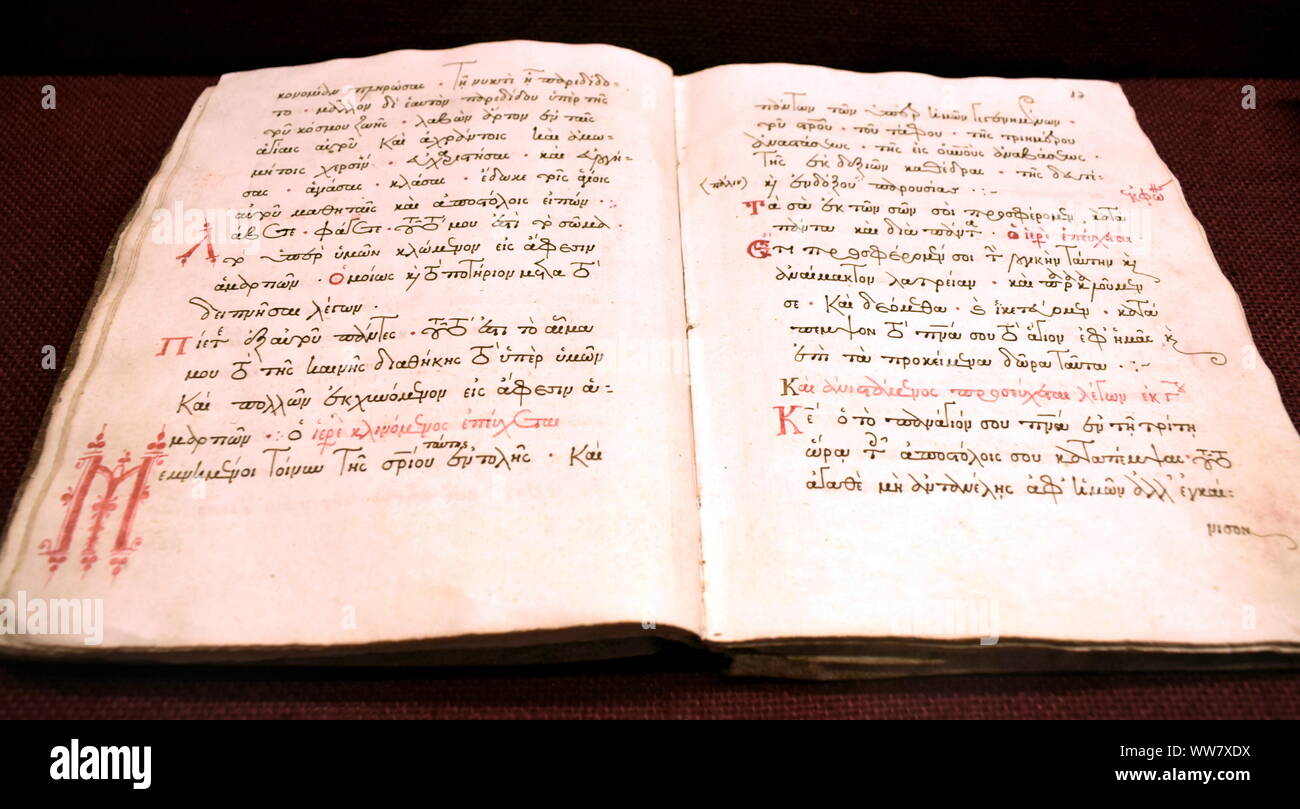 κονομίαν πληρώσας · Τῇ νυκτὶ ᾗ παρεδίδο-
το · μᾶλλον δὲ ἑαυτὸν παρεδίδου ὑπὲρ τῆς
τοῦ κόσμου ζωῆς · λαβὼν ἄρτον ἐν ταῖς
ἁγίαις αὐτοῦ καὶ ἀχράντοις καὶ ἀμω-
μήτοις χερσὶν · εὐχαριστήσας · καὶ ἁγιά-
σας · κλάσας · ἔδωκε τοῖς ἁγίοις
αὐτοῦ μαθηταῖς καὶ ἀποστόλοις εἰπών
Λάβετε · φάγετε · τοῦτό μου ἐστὶ τὸ σῶμα ·
τὸ ὑπὲρ ὑμῶν κλώμενον εἰς ἄφεσιν
ἁμαρτιῶν · Ὁμοίως κ τὸ ποτήριον μετὰ τὸ
δειπνῆσαι λέγων ·
Πίετε ἐξ αὐτοῦ πάντες · τοῦτό ἐστι τὸ αἷμα
μου τὸ τῆς καινῆς διαθήκης τὸ ὑπὲρ ὑμῶν
καὶ πολλῶν ἐκχυνόμενον εἰς ἄφεσιν ἁ-
μαρτιῶν · Ὁ ἱερε κλινόμενος ἐπεύχεται
ταύτης
Μεμνημένοι τοίνυν τῆς σρίου ἐντολῆς · Καὶ
πάντων τῶν ὑπὲρ ἡμῶν γεγενημένων ·
τοῦ σροῦ · τοῦ τάφου · τῆς τριημέρου
ἀναστάσεως · τῆς εἰς οὐνοὺς ἀναβάσεως ·
Τῆς ἐκ δεξιῶν καθέδρας · τῆς δευτέ-
(πάλιν) κ ἐνδόξου παρουσίας
ἐκφώ
Τὰ σὰ ἐκ τῶν σῶν σοὶ προσφέρομεν κατὰ
πάντα καὶ διὰ πάντα · ὁ ἱερε ἐπεύχεται
Ἔτι προσφέρομέν σοι τ λογικὴν ταύτην κ
ἀναίμακτον λατρείαν · καὶ παρακαλοῦμέν
σε · Καὶ δεόμεθα · κ ἱκετεύομεν · κατά
πεμψον τὸ πνά σου τὸ ἅγιον ἐφ' ἡμᾶς κ
ἐπὶ τὰ προκείμενα δῶρα ταῦτα
Καὶ ἀνιστάμενος προσεύχεται λέγων ἐκ γ
Κε ὁ τὸ πανάγιόν σου πνά ἐν τῇ τρίτῃ
ὥρᾳ τοῖς ἀποστόλοις σου καταπέμψας · τοῦτο
ἀγαθὲ μὴ ἀντανέλῃς ἀφ' ἡμῶν ἀλλ' ἐγκαί-
νισον
alamy
alamy
Image ID: WW7XDX
www.alamy.com